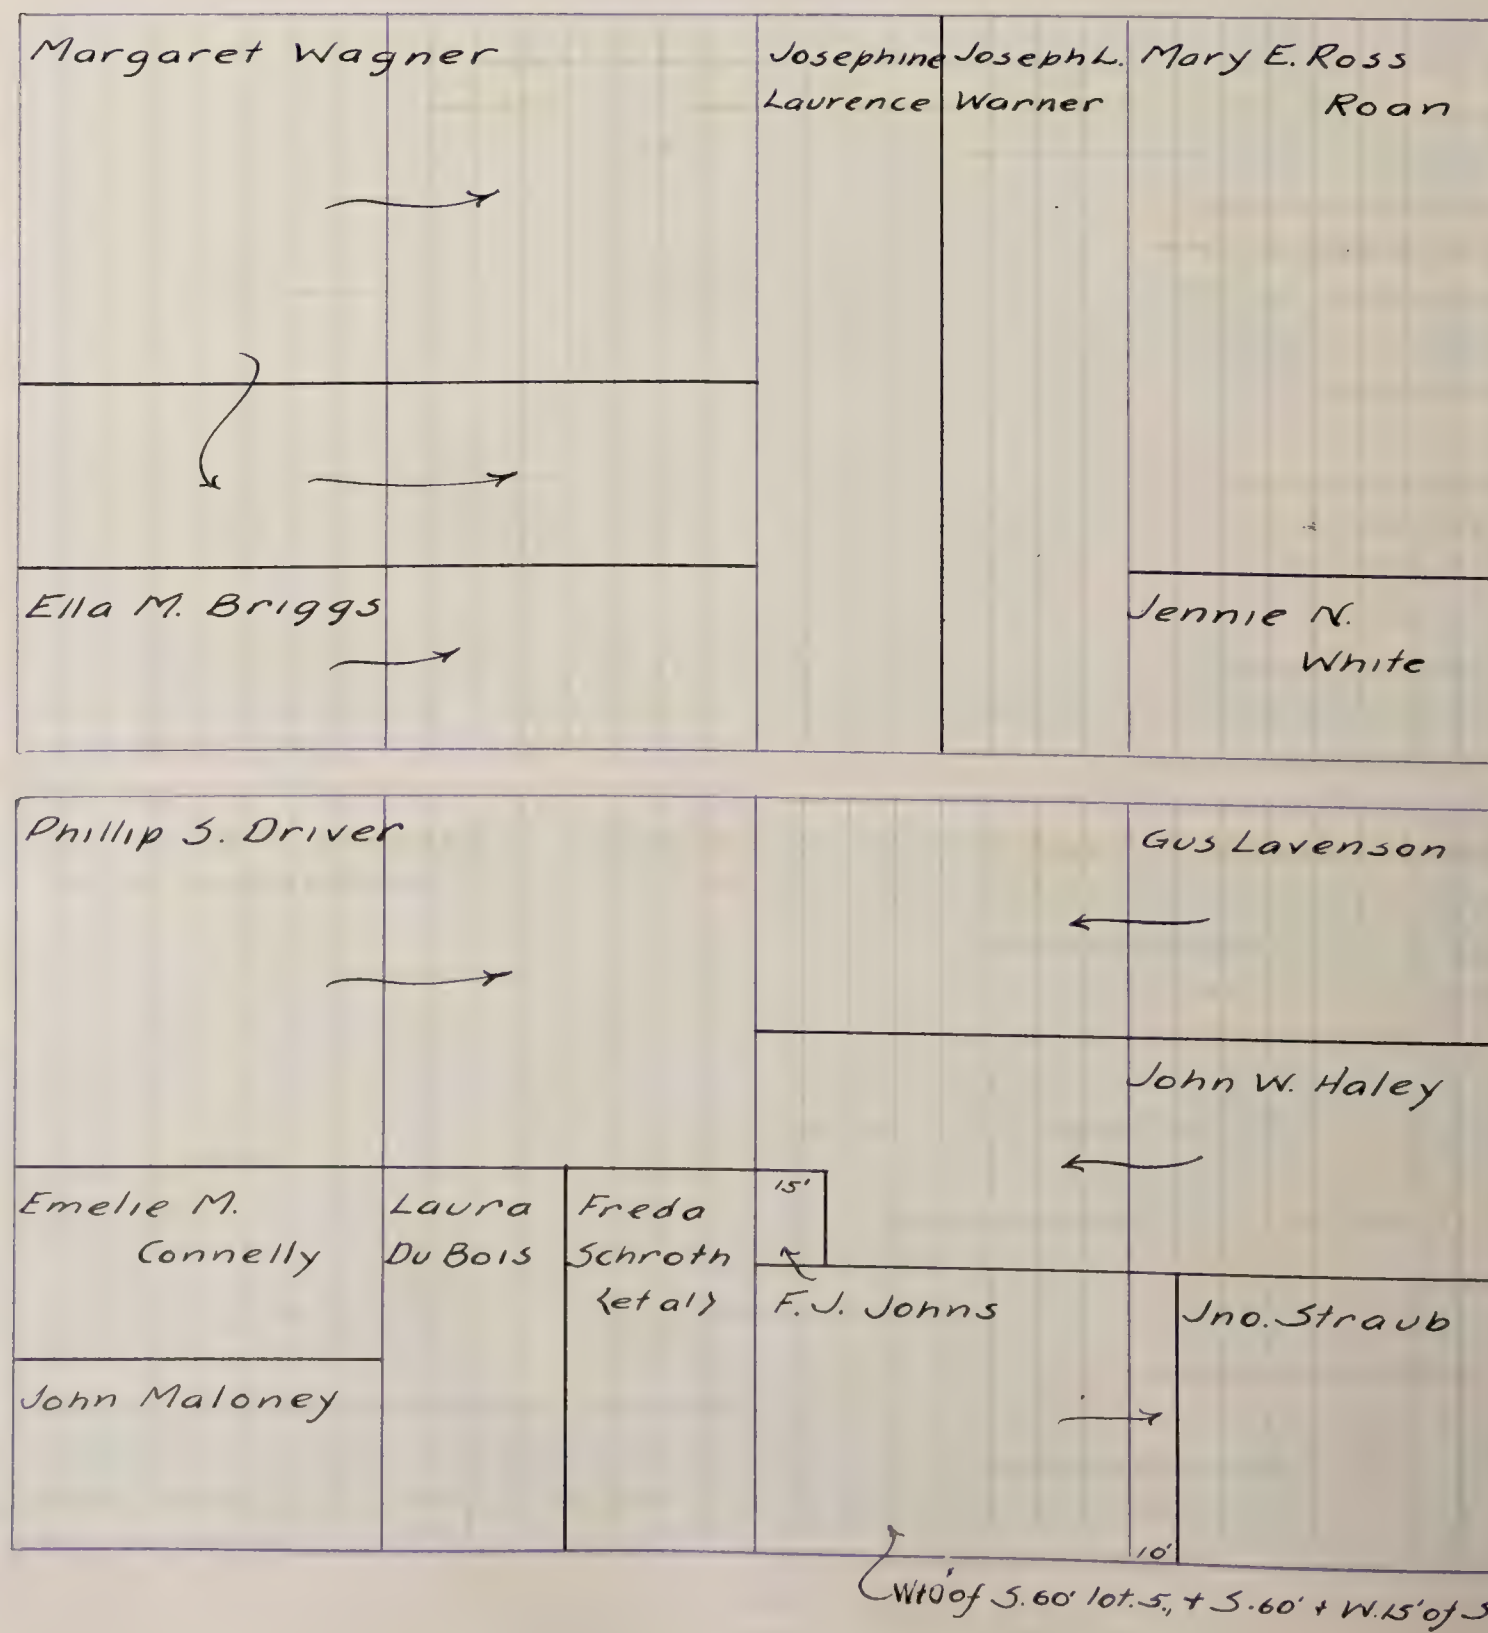 Margaret Wagner
Josephine
Laurence
Joseph L.
Warner
Mary E. Ross
Roan
Ella M. Briggs
Jennie N.
White
Phillip S. Driver
Gus Lavenson
John W. Haley
Emelie M.
Connelly
Laura
Du Bois
Freda
Schroth
(et al)
15'
F. J. Johns
Jno. Straub
John Maloney
10'
W10' of S. 60' lot. 5., + S. 60' + W. 15' of S